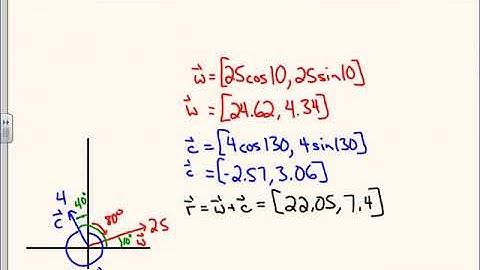 w⃗ = [25cos10, 25sin10]
w⃗ = [24.62, 4.34]
c⃗ = [4cos130, 4sin130]
c⃗ = [-2.57, 3.06]
r⃗ = w⃗ + c⃗ = [22.05, 7.4]
4 40°
c⃗ 80° 25
10° w⃗